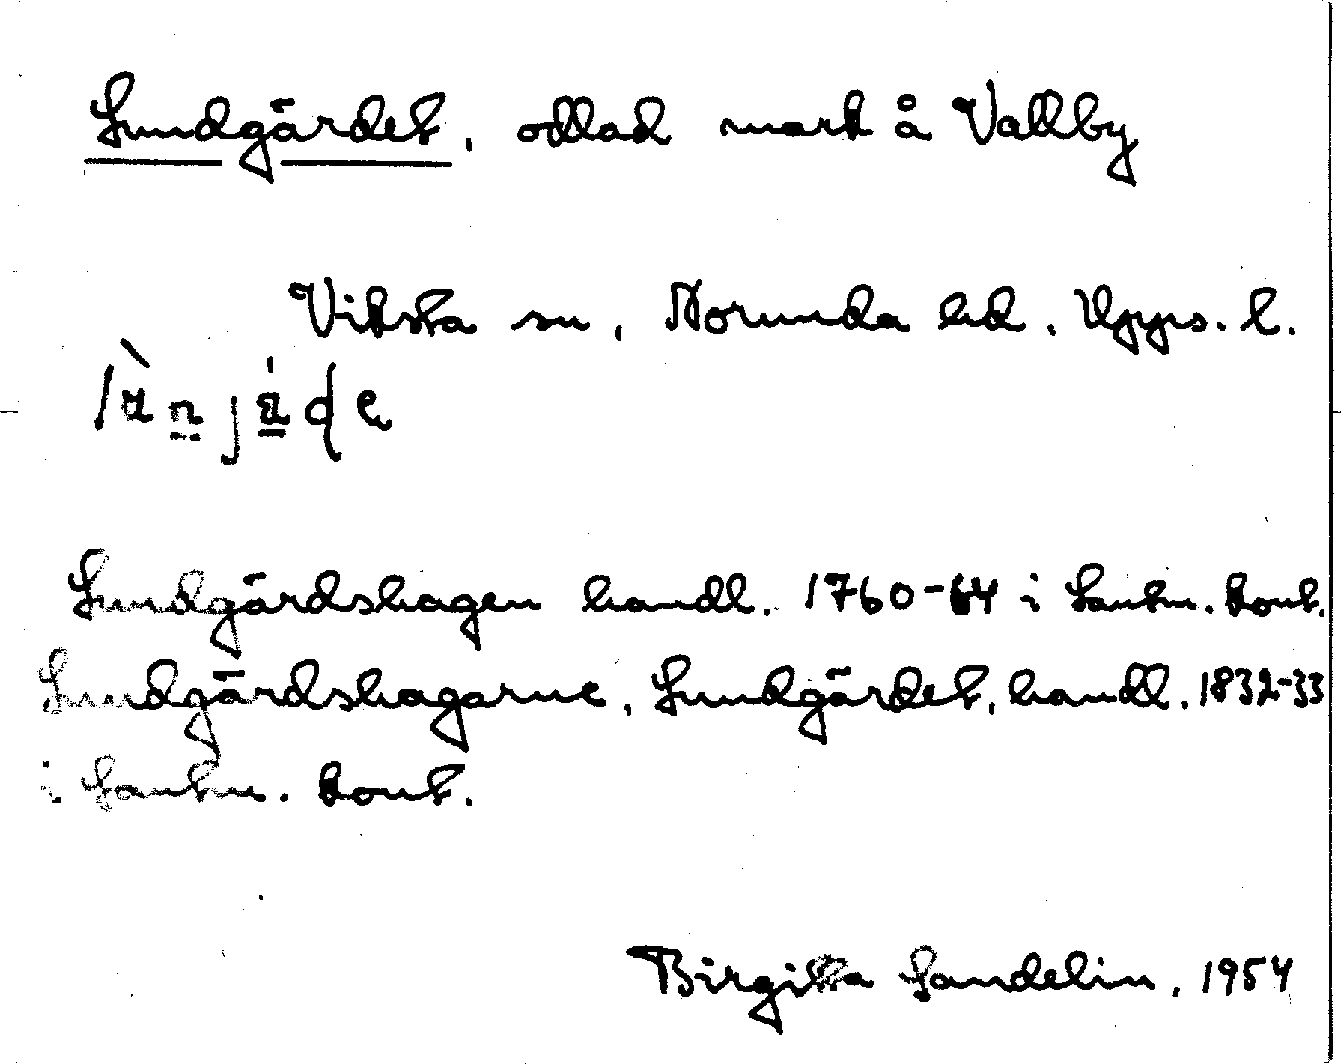 Lundgärdet, odlad mark å Vallby
Viksta sn, Norunda hd. Upps. l.
Lundgärdshagen handl. 1760-64 i Lantm. kont.
Lundgärdshagarne, Lundgärdet, handl. 1832-33
i Lantm. kont.
Birgitta Landelin, 1954